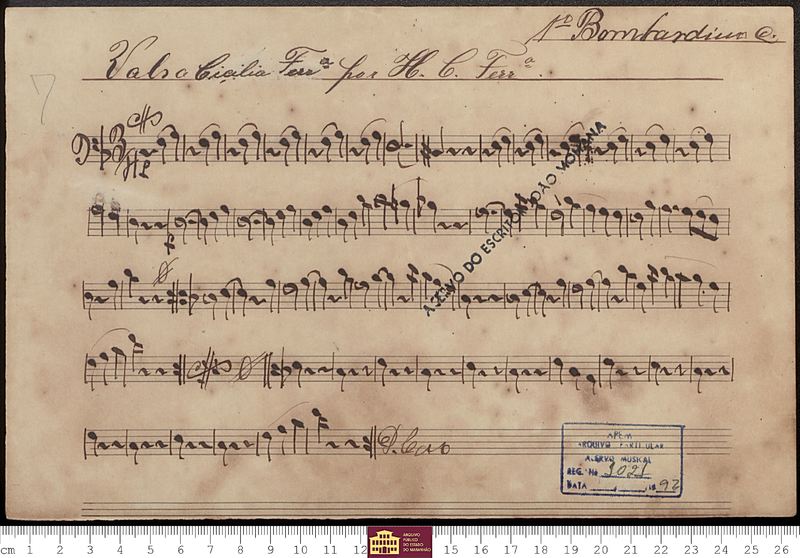 1º Bombardino C.
Valsa Cicilia Ferrª por H. C. Ferrª.
7
ACERVO DO ESCRITOR JOÃO MOHANA
D. Capo
APEM
ARQUIVO PARTICULAR
ACERVO MUSICAL
REG. Nº 1021
DATA 92
cm 1 2 3 4 5 6 7 8 9 10 11 12 15 16 17 18 19 20 21 22 23 24 25 26
ARQUIVO
PÚBLICO
DO ESTADO
DO MARANHÃO